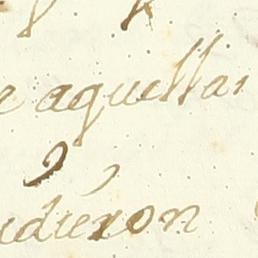 aquellas
udieron